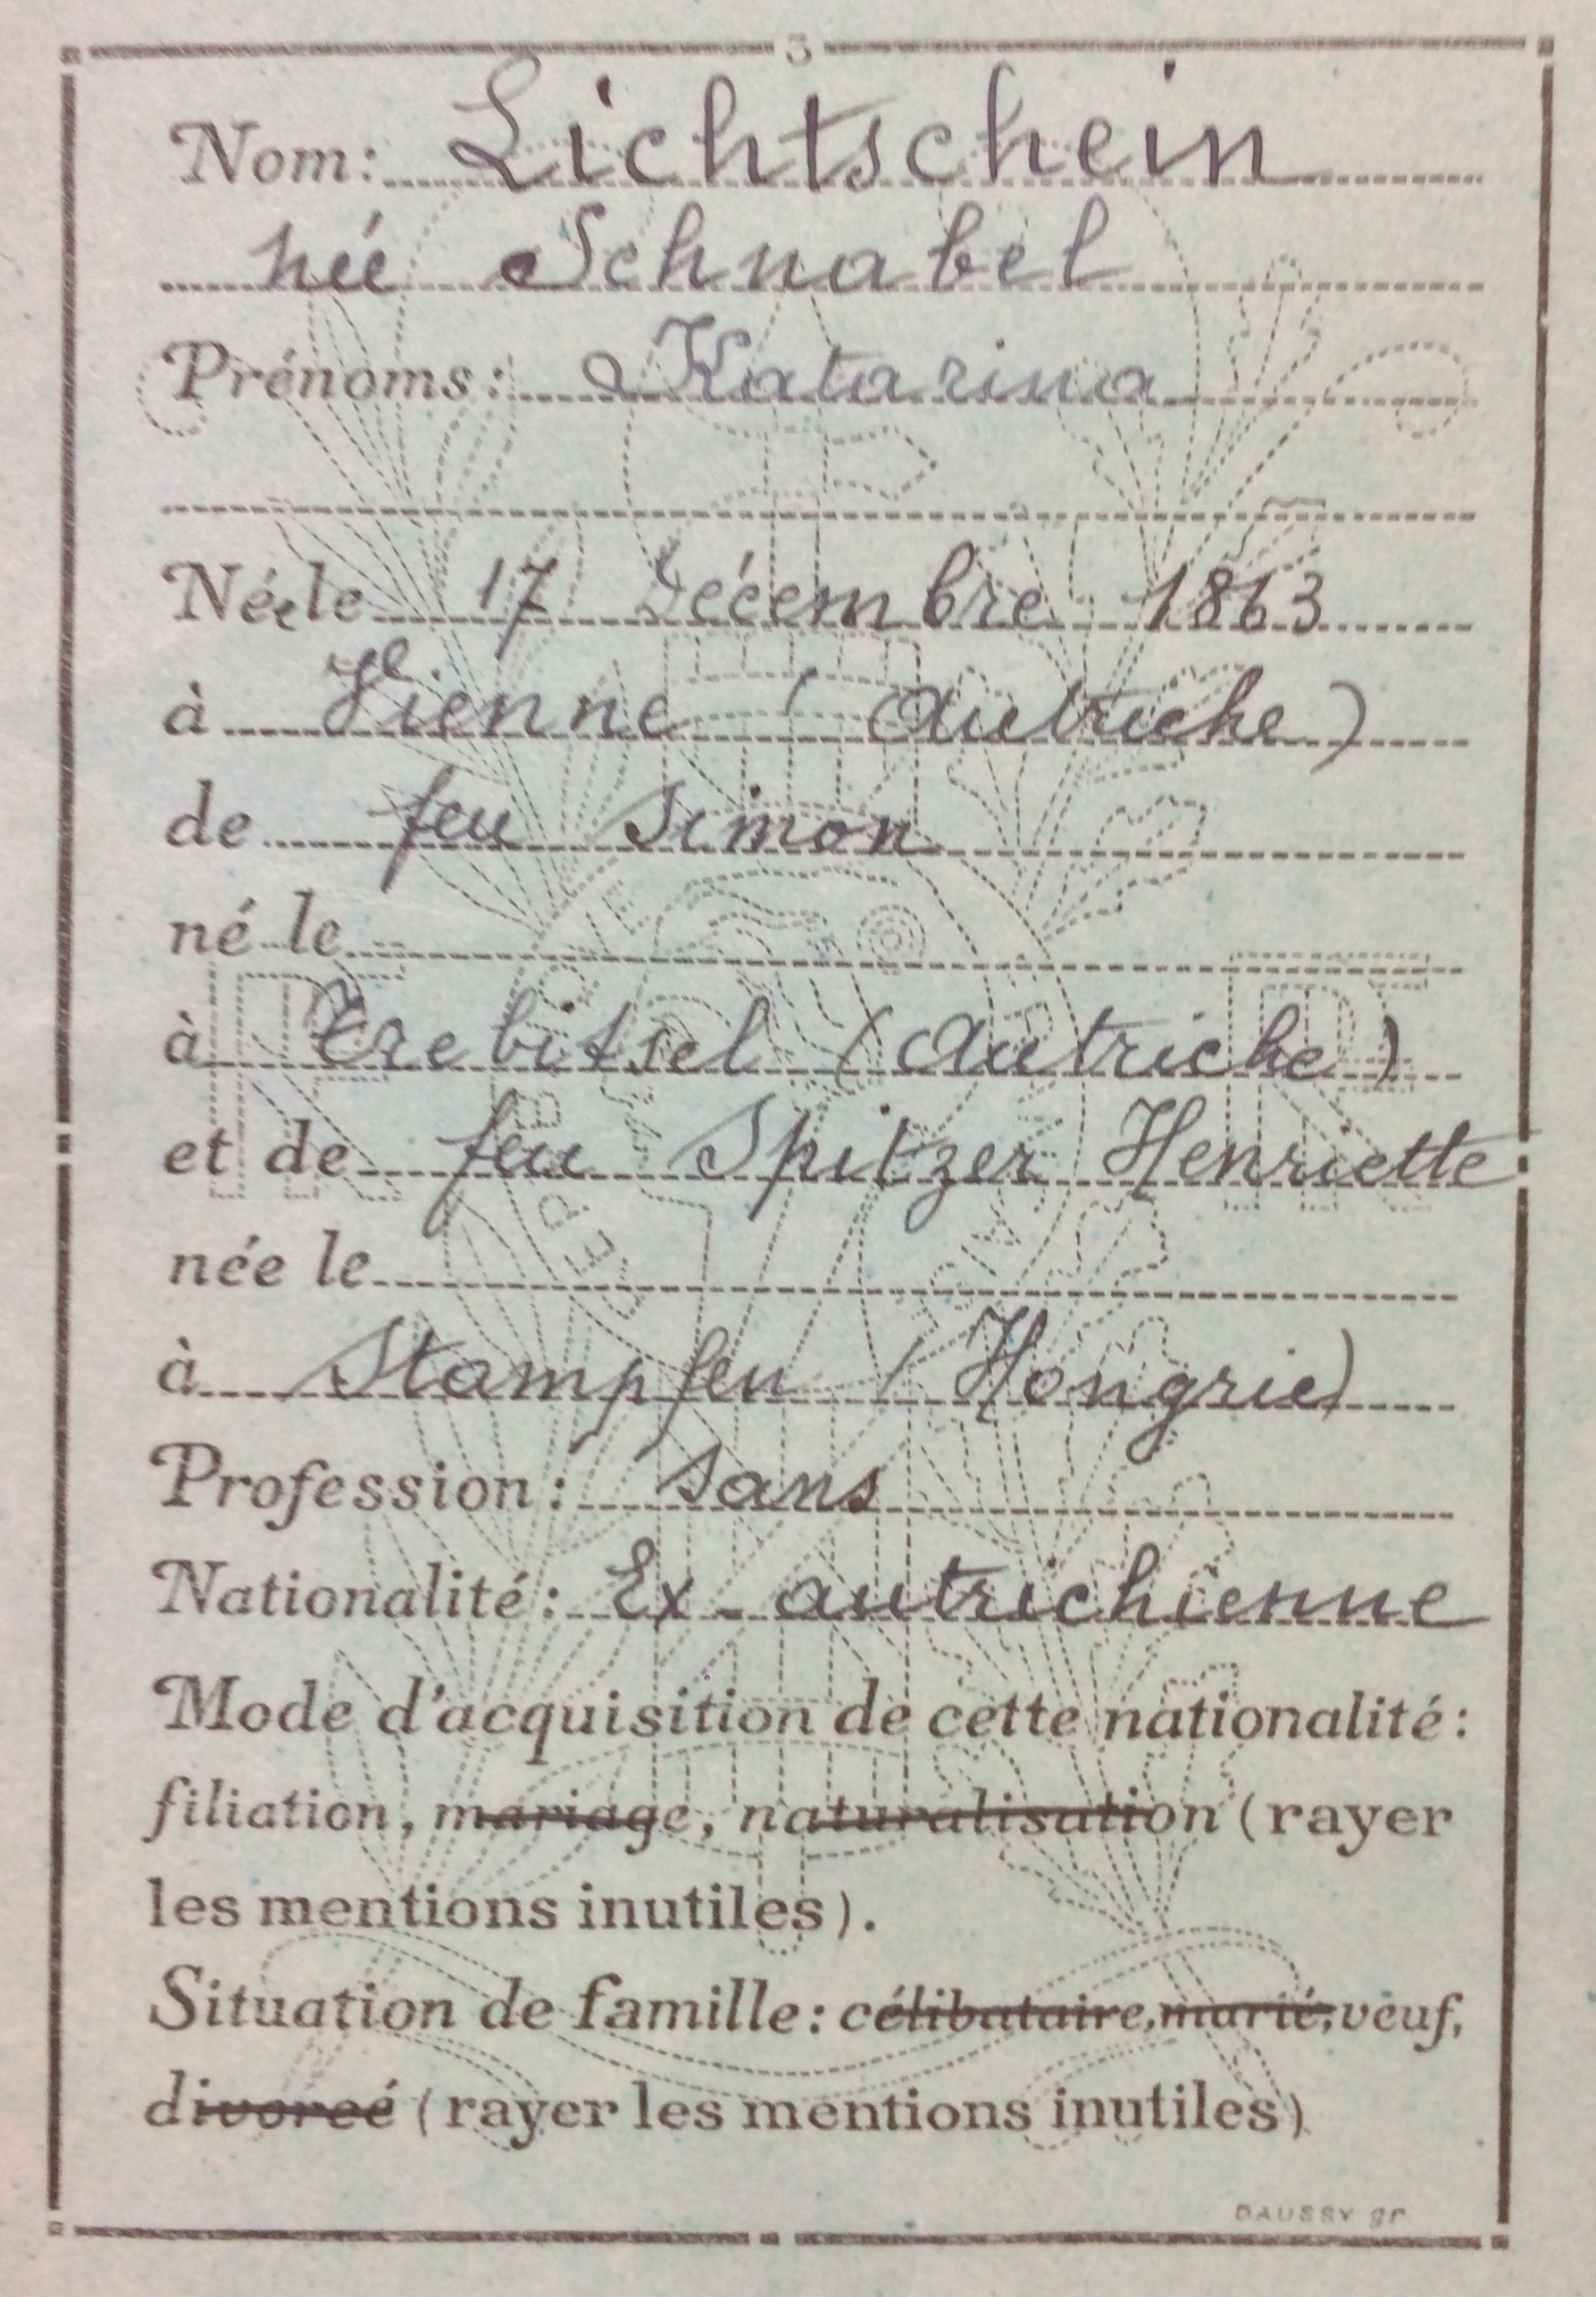 3
Nom: Lichtschein
née Schnabel
Prénoms: Katarina
Née le 17 Décembre 1863
à Vienne (Autriche)
de feu Simon
né le
à Trebitsel (Autriche)
et de feu Spitzer Henriette
née le
à Stampfen (Hongrie)
Profession: sans
Nationalité: Ex-autrichienne
Mode d'acquisition de cette nationalité:
filiation, mariage, naturalisation (rayer
les mentions inutiles).
Situation de famille: célibataire, marié, veuf,
divorcé (rayer les mentions inutiles)
DAUSSY gr